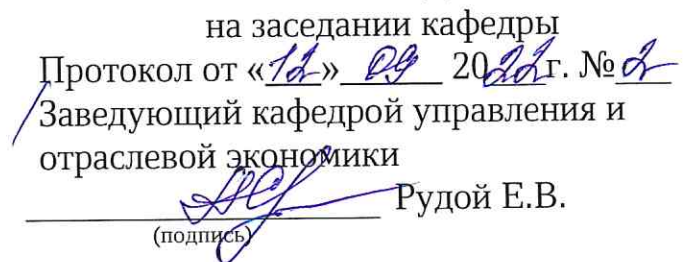 на заседании кафедры
Протокол от «12» 09 2022г. № 2
Заведующий кафедрой управления и
отраслевой экономики
Рудой Е.В.
(подпись)